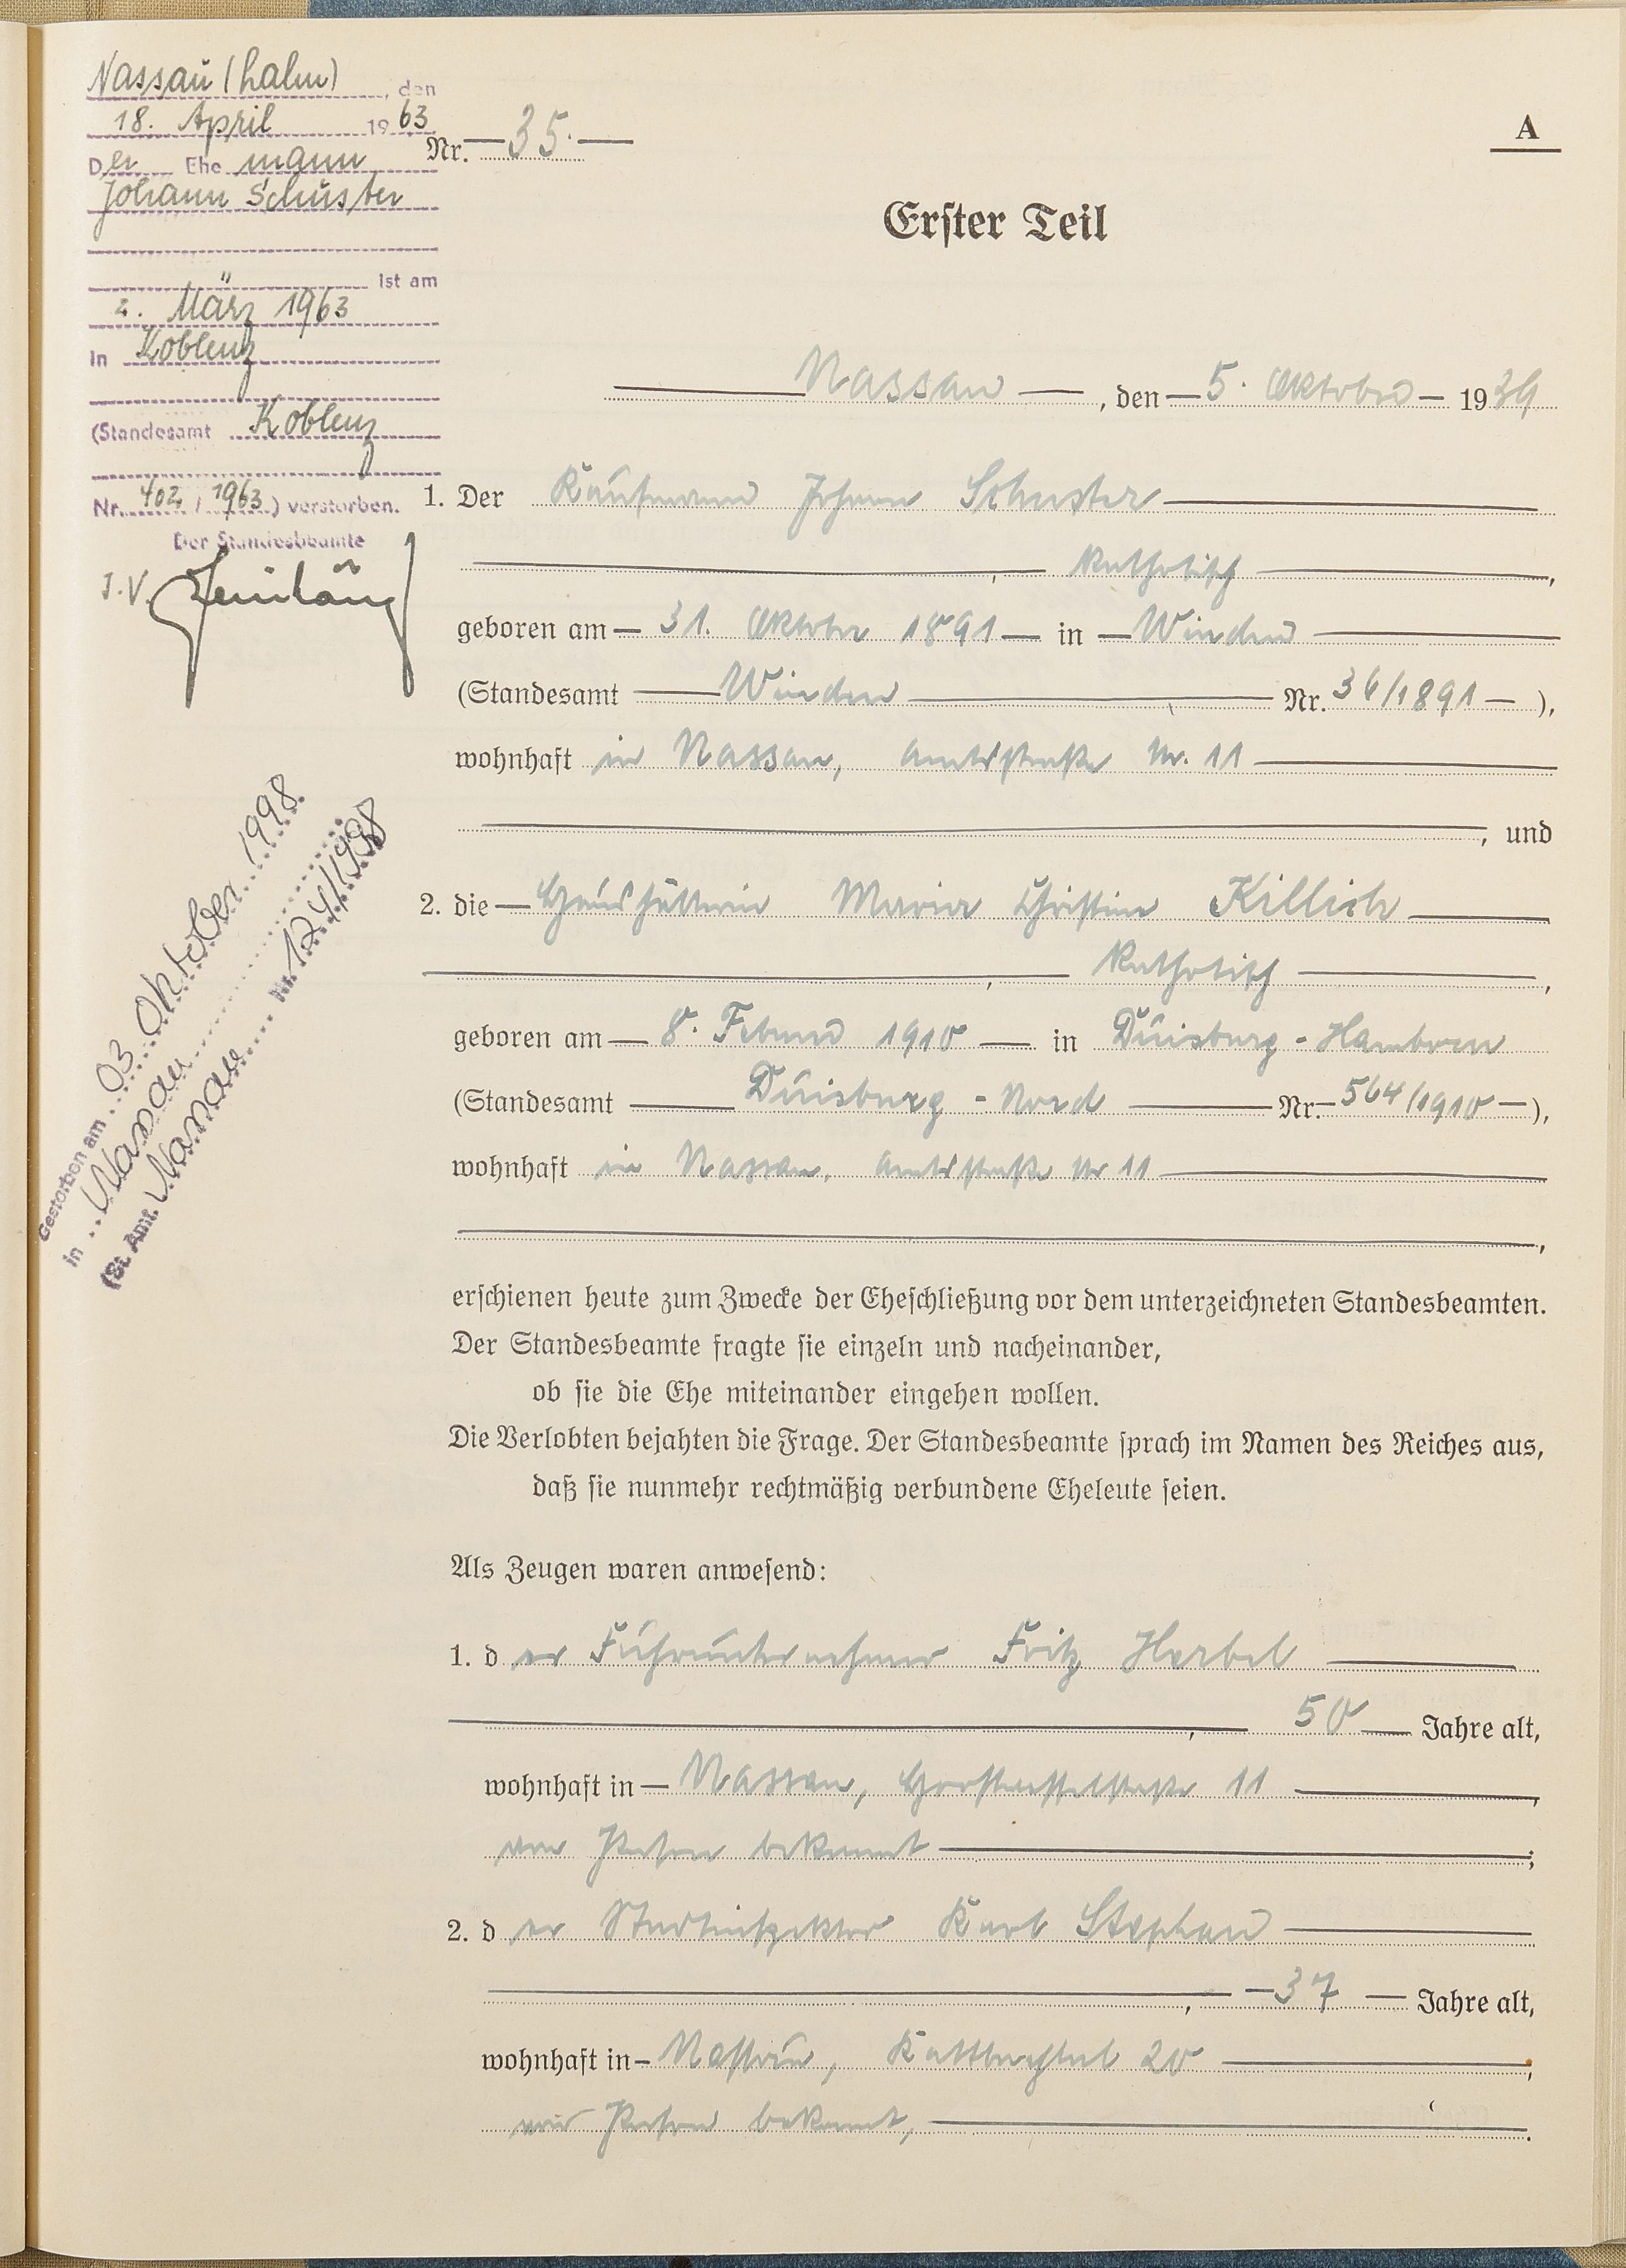 Nassau (Lahn), den
18. April 1963
Der Ehe mann
Johann Schuster
ist am
2. März 1963
in Koblenz
(Standesamt Koblenz
Nr. 402 / 1963) verstorben.
Der Standesbeamte
I.V.
Gestorben am 03. Oktober 1998
in Nassau
(St. Amt. Nassau Nr. 124/1998
Nr. 35.
A
Erster Teil
Nassau, den 5. Oktober 1939
1. Der Kaufmann Johann Schuster
, katholisch,
geboren am 31. Oktober 1891 in Winden
(Standesamt Winden Nr. 36/1891),
wohnhaft in Nassau, Amtsstraße Nr. 11
, und
2. die Haushälterin Maria Christine Killich
, katholisch,
geboren am 8. Februar 1910 in Duisburg-Hamborn
(Standesamt Duisburg-Nord Nr. 564/1910),
wohnhaft in Nassau, Amtsstraße Nr 11
,
erschienen heute zum Zwecke der Eheschließung vor dem unterzeichneten Standesbeamten.
Der Standesbeamte fragte sie einzeln und nacheinander,
ob sie die Ehe miteinander eingehen wollen.
Die Verlobten bejahten die Frage. Der Standesbeamte sprach im Namen des Reiches aus,
daß sie nunmehr rechtmäßig verbundene Eheleute seien.
Als Zeugen waren anwesend:
1. der Fuhrunternehmer Fritz Herbel
, 50 Jahre alt,
wohnhaft in Nassau, 11,
von Person bekannt;
2. der Stadtinspektor Karl Stephan
, 37 Jahre alt,
wohnhaft in Nassau, Kaltbachtal 20,
von Person bekannt,.